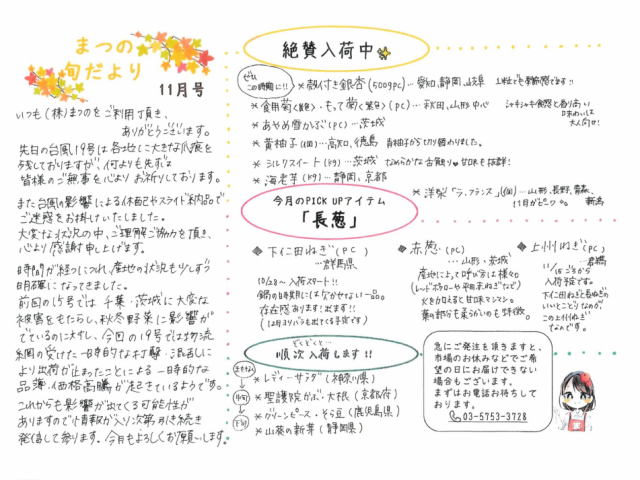 まつの
旬だより
11月号
いつも(株)まつのをご利用頂き、
ありがとうございます。
先日の台風19号は各地に大きな爪痕を
残しておりますが、何よりも先ずは
皆様のご無事を心よりお祈りしております。
また台風影響による休配やスライド納品で
ご迷惑をお掛けいたしました。
大変な状況の中、ご理解ご協力を頂き、
心より感謝申し上げます。
時間が経つにつれ、産地の状況も少しずつ
明確になってきました。
前回の15号では千葉・茨城に大変な
被害をもたらし、秋冬野菜に影響が
でているのに対し、今回の19号では物流
網の受けた一時的な打撃・混乱に
より出荷が止まったことによる一時的な
品薄・価格高騰が起きているようです。
これからも影響が出てくる可能性が
ありますので情報が入り次第引き続き
発信して参ります。今月もよろしくお願いします。
絶賛入荷中
ぜひ
この時期に!!
*殻付き銀杏(500gPC)…愛知、静岡、山梨
*食用菊(黄)、もって菊(紫)(PC)…秋田、山形中心
シャキシャキ食感と香り高い
味わいは
大人向け!
*あやめ雪かぶ(PC)…茨城
*黄柚子(個)…高知、徳島
青柚子から切り替わりました。
*シルクスイート(ケク)…茨城
なめらかな舌触り♥甘味も抜群!
*海老芋(ケク)…静岡、京都
*洋梨「ラ・フランス」(個)…山形、長野、青森、
新潟
11月がピーク
今月のPICK UPアイテム
「長葱」
◆下仁田ねぎ(PC)
…群馬県
10/28～入荷スタート!!
鍋の時期には欠かせない一品。
存在感あります!出ます!!
◆赤葱(PC)
…山形、茨城
産地によって呼び方は様々。
(レッドポロネーや平田赤ねぎなど)
火を加えると甘味マシマシ。
葉の部分も柔らかいのも特徴。
◆上州ねぎ(PC)
…群馬
11/15ごろから
入荷予定です。
下仁田ねぎと長ねぎの
いいとこどりなのが、
この上州ねぎ
なんです。
ぞくぞくと…
順次入荷します!!
*レディーサラダ(神奈川県)
中旬
*聖護院かぶ・大根(京都府)
*グリーンピース・そら豆(鹿児島県)
下旬
*山葵の新芽(静岡県)
急にご発注を頂きますと、
市場のお休みなどでご希
望の日にお届けできない
場合もございます。
まずはお電話お待ちして
おります。
03-5753-3728